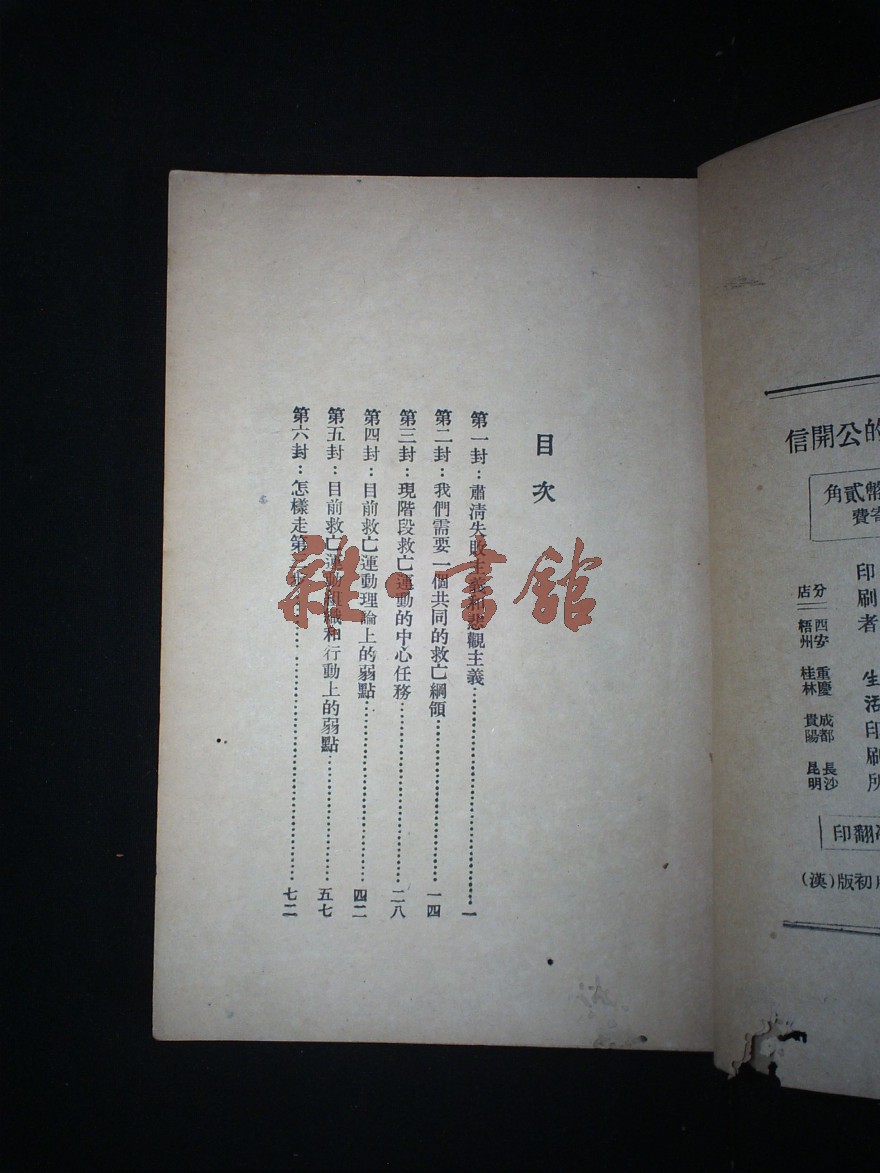 目次
第一封：肅清失敗主義和悲觀主義……一
第二封：我們需要一個共同的救亡綱領……一四
第三封：現階段救亡運動的中心任務……二八
第四封：目前救亡運動理論上的弱點……四二
第五封：目前救亡運動組織和行動上的弱點……五七
第六封：怎樣走第……七二
雜·書館
的公開信
幣貳角
寄費
印刷者
生活印刷所
分店
西安 重慶 成都 長沙
梧州 桂林 貴陽 昆明
翻印
(漢)版初